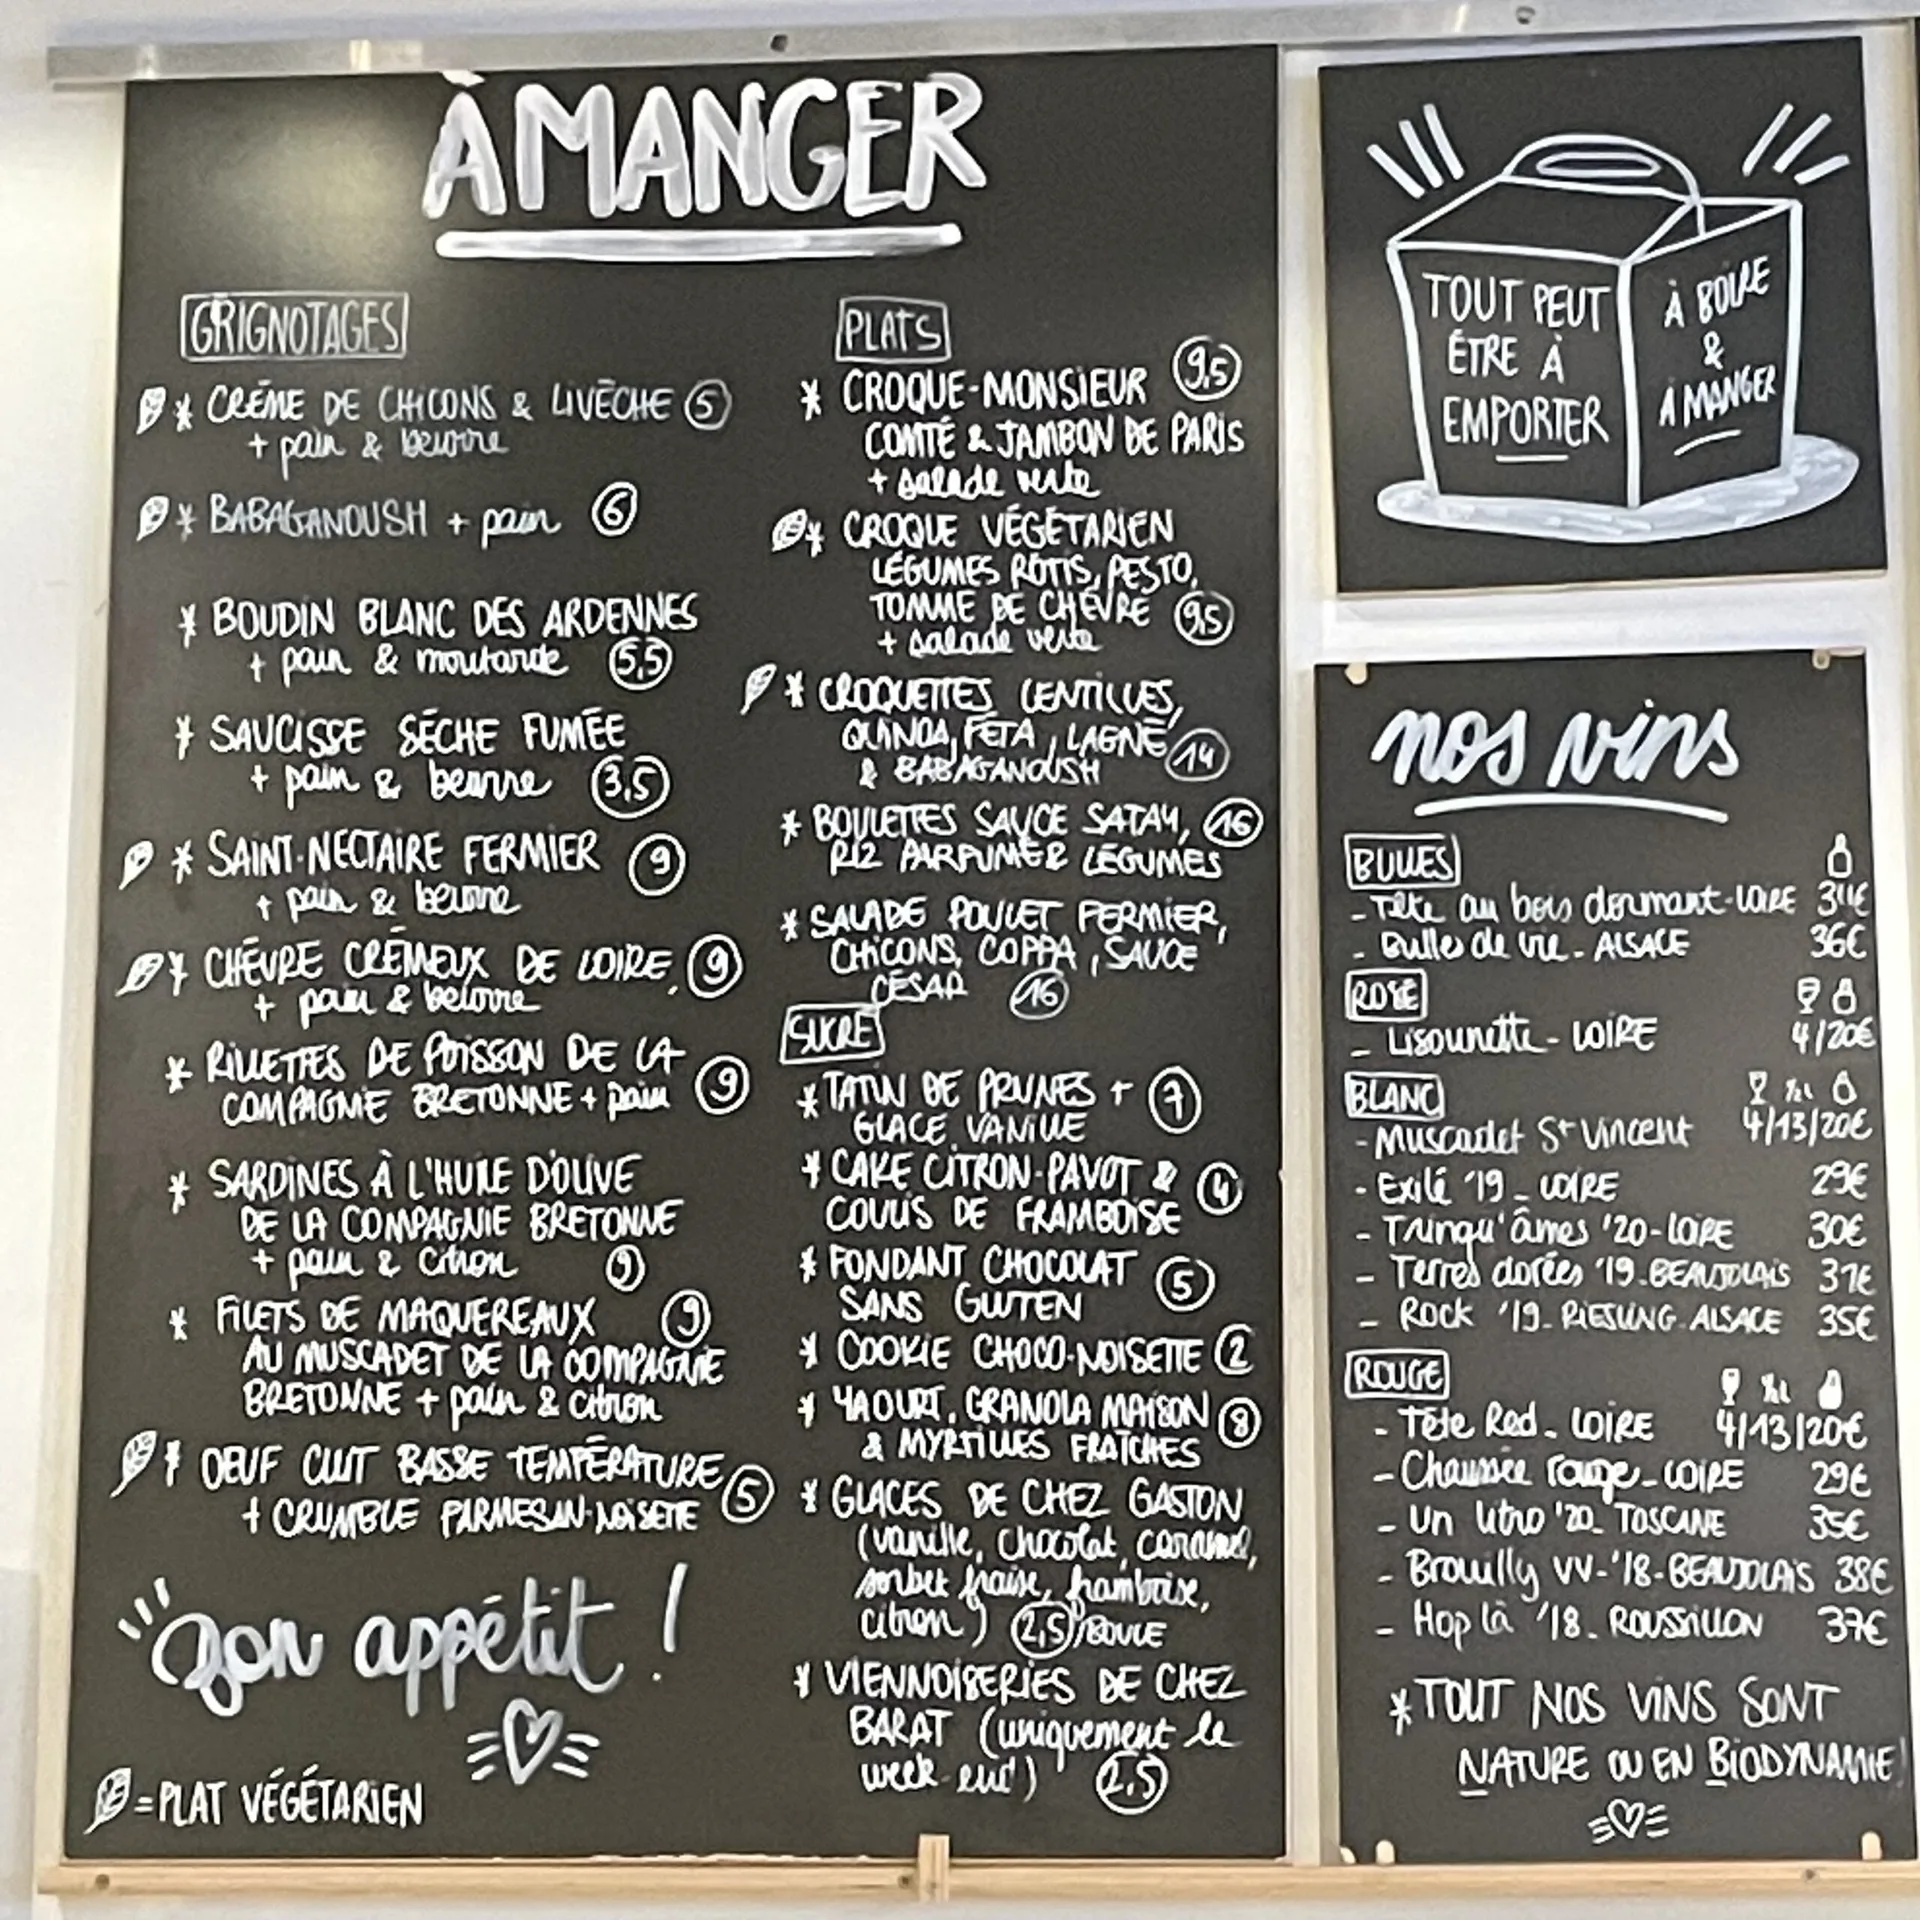 À MANGER
GRIGNOTAGES
* CRÈME DE CHICONS & LIVÈCHE 5
+ pain & beurre
* BABAGANOUSH + pain 6
* BOUDIN BLANC DES ARDENNES
+ pain & moutarde 5,5
* SAUCISSE SÈCHE FUMÉE
+ pain & beurre 3,5
* SAINT-NECTAIRE FERMIER 9
+ pain & beurre
* CHÈVRE CRÉMEUX DE LOIRE 9
+ pain & beurre
* RILLETTES DE POISSON DE LA
COMPAGNIE BRETONNE + pain 9
* SARDINES À L'HUILE D'OLIVE
DE LA COMPAGNIE BRETONNE
+ pain & citron 9
* FILETS DE MAQUEREAUX 9
AU MUSCADET DE LA COMPAGNIE
BRETONNE + pain & citron
* OEUF CUIT BASSE TEMPÉRATURE 5
+ CRUMBLE PARMESAN-NOISETTE
Bon appétit !
= PLAT VÉGÉTARIEN
PLATS
* CROQUE-MONSIEUR 9,5
COMTÉ & JAMBON DE PARIS
+ salade verte
* CROQUE VÉGÉTARIEN
LÉGUMES RÔTIS, PESTO,
TOMME DE CHÈVRE 9,5
+ salade verte
* CROQUETTES LENTILLES,
QUINOA, FÉTA, LABNÉ 14
& BABAGANOUSH
* BOULETTES SAUCE SATAY, 16
RIZ PARFUMÉ & LÉGUMES
* SALADE POULET FERMIER,
CHICONS, COPPA, SAUCE
CÉSAR 16
SUCRÉ
* TATIN DE PRUNES + 7
GLACE VANILLE
* CAKE CITRON-PAVOT & 4
COULIS DE FRAMBOISE
* FONDANT CHOCOLAT 5
SANS GLUTEN
* COOKIE CHOCO-NOISETTE 2
* YAOURT, GRANOLA MAISON 8
& MYRTILLES FRAÎCHES
* GLACES DE CHEZ GASTON
(vanille, chocolat, caramel,
sorbet fraise, framboise,
citron) 2,5/BOULE
* VIENNOISERIES DE CHEZ
BARAT (uniquement le
week-end) 2,5
TOUT PEUT
ÊTRE À
EMPORTER
À BOIRE
&
À MANGER
nos vins
BULLES
- Tête au bois dormant - LOIRE 34€
- Bulles de vie - ALSACE 36€
ROSÉ
- Lisounette - LOIRE 4/20€
BLANC
- Muscadet St Vincent 4/13/20€
- Exilé '19 - LOIRE 29€
- Tringu'âmes '20 - LOIRE 30€
- Terres dorées '19 - BEAUJOLAIS 31€
- Rock '19 - RIESLING - ALSACE 35€
ROUGE
- Tête Red - LOIRE 4/13/20€
- Chaussée rouge - LOIRE 29€
- Un litro '20 - TOSCANE 35€
- Brouilly VV - '18 - BEAUJOLAIS 38€
- Hop là '18 - ROUSSILLON 37€
* TOUT NOS VINS SONT
NATURE OU EN BIODYNAMIE!